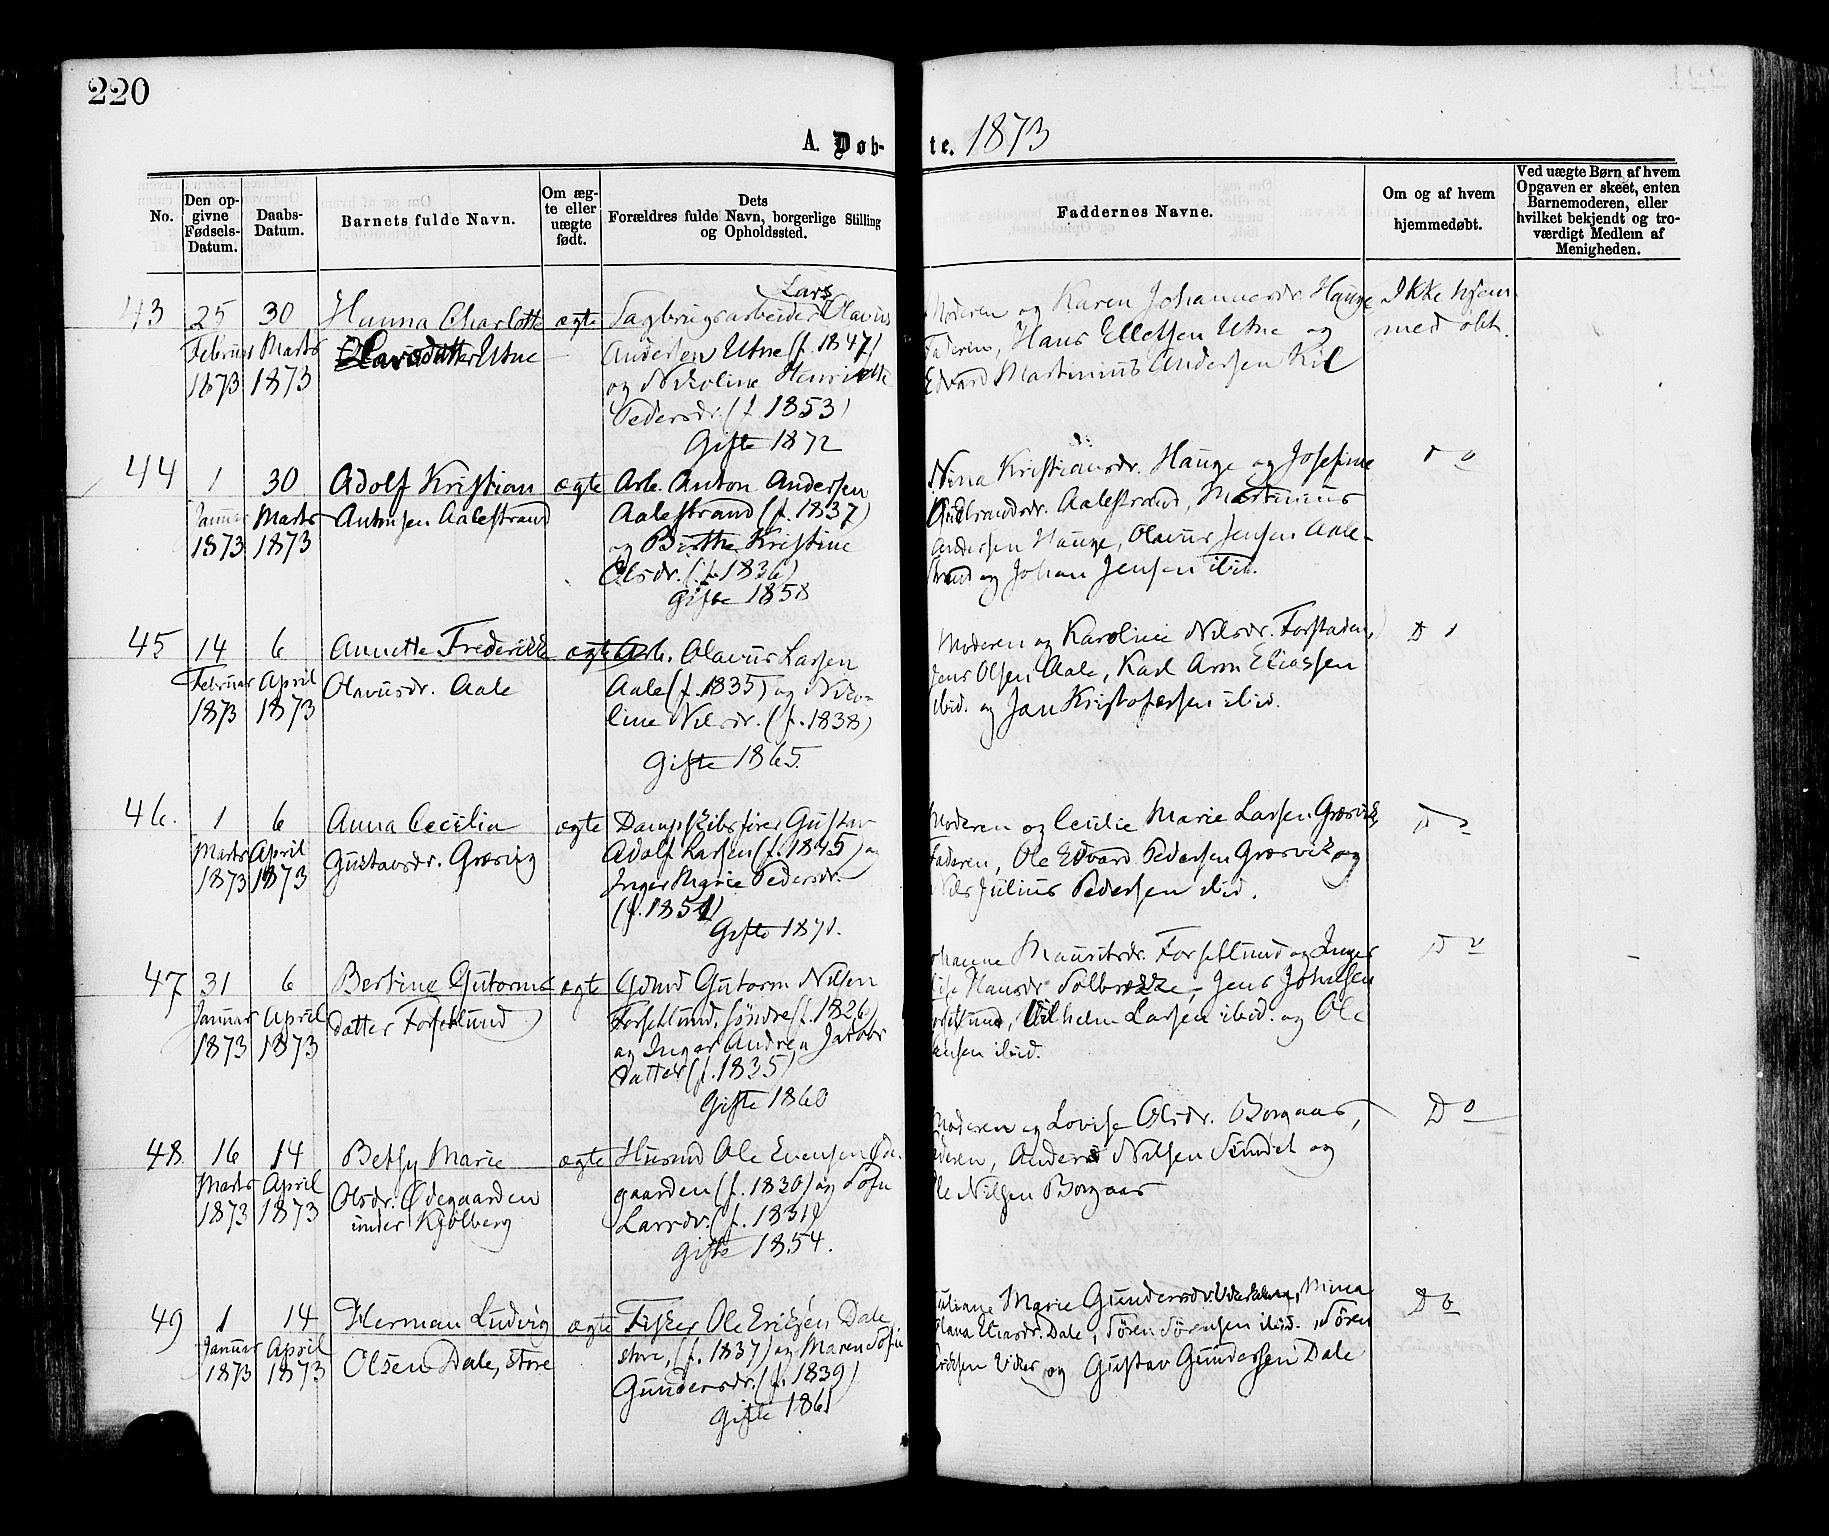 220
A. Døb-te. 1873
No.
Den op-
givne
Fødsels-
Datum.
Daabs-
Datum.
Barnets fulde Navn.
Om æg-
te eller
uægte
født.
Dets
Forældres fulde Navn, borgerlige Stilling
og Opholdssted.
Faddernes Navne.
Om og af hvem
hjemmedøbt.
Ved uægte Børn af hvem
Opgaven er skeet, enten
Barnemoderen, eller
hvilket bekjendt og tro-
værdigt Medlem af
Menigheden.
43
25
Februar
1873
30
Marts
1873
Hanna Charlotte
Larsdatter Utne
ægte
Lars
Sagbrugsarbeider Olavus
Andersen Utne (f. 1847)
og Nikoline Henriette
Pedersdr. (f. 1853)
Gifte 1872
Moderen og Karen Johannesdr. Hauge
Faderen, Hans Ellefsen Utne og
Edvard Martinius Andersen Kil
Ikke hjem
med øbt.
44
1
Januar
1873
30
Marts
1873
Adolf Kristian
Antonsen Aalestrand
ægte
Arb. Anton Andersen
Aalestrand (f. 1837)
og Birthe Kristine
Olsdr. (f. 1836)
Gifte 1858
Nina Kristiansdr. Hauge og Josefine
Aalestrand, Martinius
Andersen Hauge, Olavus Jensen Aale-
strand og Johan Jensen ibid.
D o
45
14
Februar
1873
6
April
1873
Annette Frederikke
Olavusdr. Aale
ægte
Arb. Olavus Larsen
Aale (f. 1835) og Niko-
line Nilsdr. (f. 1838)
Gifte 1865.
Moderen og Karoline Nilsdr. Forstaden,
Jens Olsen Aale, Karl Arm Eliassen
ibid. og Jan Kristofersen ibid.
D
46.
1
Marts
1873
6
April
1873
Anna Cecilia
Gustavsdr. Græsvig
ægte
Dampskibsfører Gustav
Adolf Larsen (f. 1845) og
Inger Marie Pedersdr.
(f. 1851)
Gifte 1871.
Moderen og Cecilie Marie Larsen Græsvik,
Faderen, Ole Edvard Pedersen Græsvik og
Julius Pedersen ibid.
D o
47
31
Januar
1873
6
April
1873
Bertine Gutorms
datter Forsetlund
ægte
Gdmd Gutorm Nilsen
Forsetlund, søndre (f. 1826)
og Inger Andrea Jacobs
datter (f. 1835)
Gifte 1860
Johanne Mauritsdr. Forsetlund og Inger
Lise Hansdr. Solbrekke, Jens Johansen
Forsetlund, Vilhelm Larsen ibid. og Ole
Hansen ibid.
D o
48
16
Marts
1873
14
April
1873
Betsy Marie
Olsdr. Ødegaarden
under Kjølberg
ægte
Husmd Ole Evensen Øde-
gaarden (f. 1830) og Sofie
Larsdr. (f. 1831)
Gifte 1854.
Moderen og Lovise Olsdr. Borgaas,
Faderen, Anders Nilsen Sundet og
Ole Nilsen Borgaas
D o
49
1
Januar
1873
14
April
1873
Herman Ludvig
Olsen Dale, store
ægte
Fisker Ole Eriksen Dale,
store, (f. 1837) og Maren Sofie
Gundersdr. (f. 1839)
Gifte 1861
Juliane Marie Gundersdr. Mina
Olava Eliasdr. Dale, Søren Sørensen ibid., Søren
Eriksen Viker og Gustav Gundersen Dale
D o